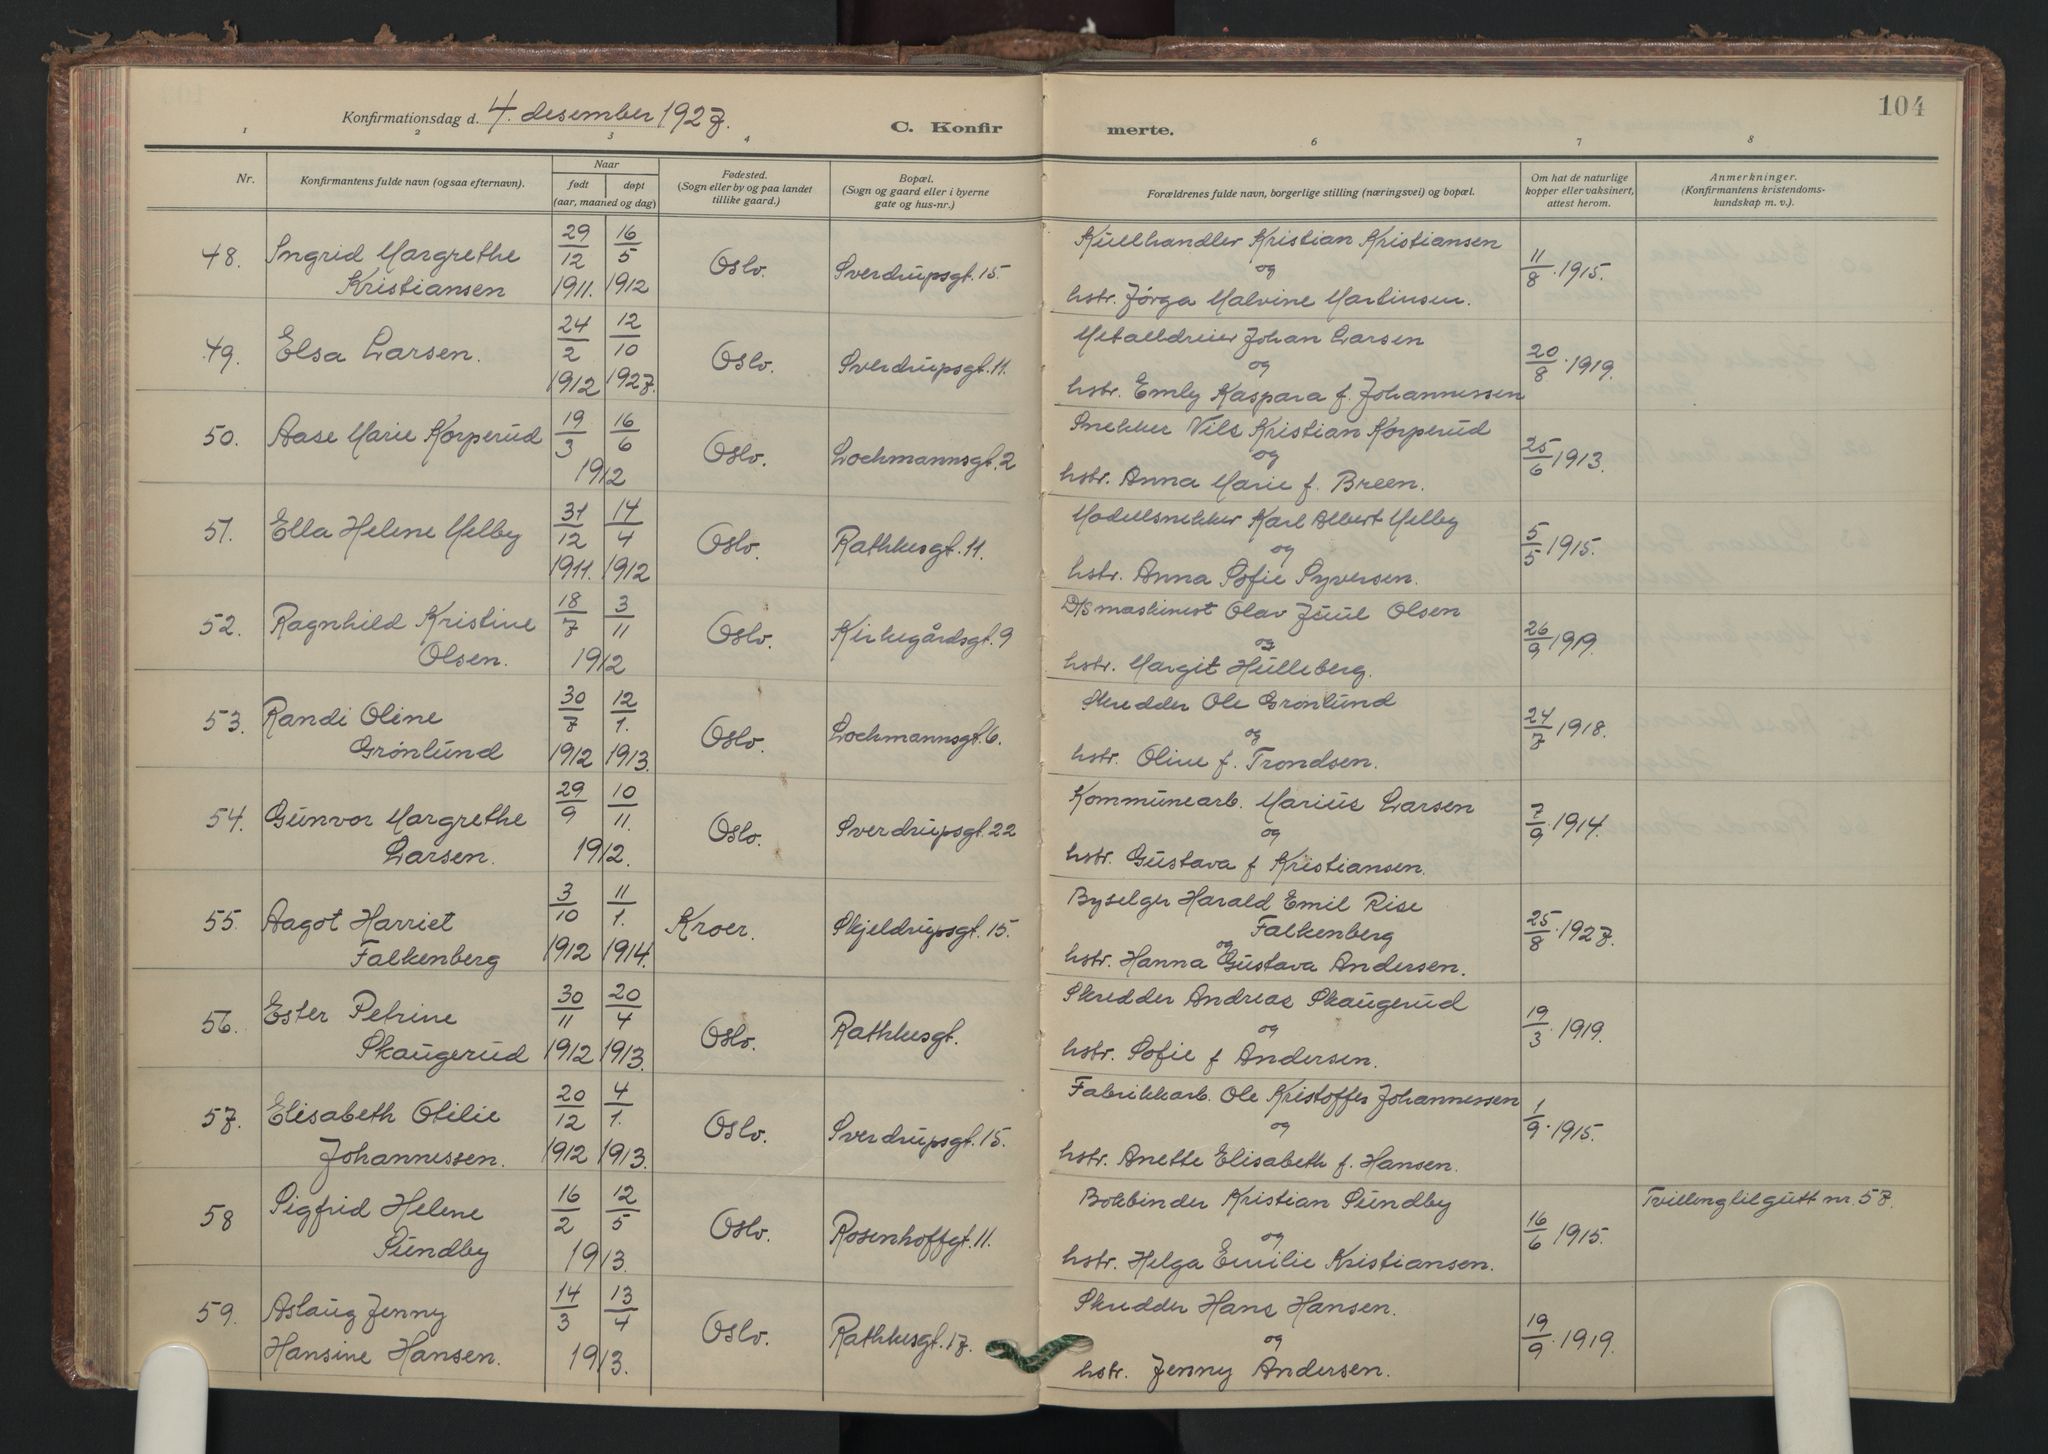 104
Konfirmationsdag d. 4. desember 1927.
C. Konfirmerte.
1 2 3 4 6 7 8
Nr.
Konfirmantens fulde navn (ogsaa efternavn).
Naar
født døpt
(aar, maaned og dag)
Fødested.
(Sogn eller by og paa landet
tillike gaard.)
Bopæl.
(Sogn og gaard eller i byerne
gate og hus-nr.)
Forældrenes fulde navn, borgerlige stilling (næringsvei) og bopæl.
Om hat de naturlige
kopper eller vaksinert,
attest herom.
Anmerkninger.
(Konfirmantens kristendoms-
kundskap m. v.).
48. Ingrid Margrethe
Kristiansen
29/12 1911. 16/5 1912
Oslo. Sverdrupsgt. 15
Kullhandler Kristian Kristiansen
og
hstr. Jørga Malvine Martinsen.
11/8 1915.
49. Elsa Larsen.
24/2 1912 12/10 1927.
Oslo. Sverdrupsgt. 11.
Metalldreier Johan Larsen
og
hstr. Emly Kaspara f. Johannessen
20/8 1919.
50. Aase Marie Korperud
19/3 16/6 1912
Oslo. Lochmannsgt. 2
Snekker Nils Kristian Korperud
og
hstr. Anna Marie f. Breen.
25/6 1913.
51. Ella Helene Melby
31/12 1911. 14/4 1912
Oslo. Rathkesgt. 11.
Modellsnekker Karl Albert Melby
og
hstr. Anna Sofie Syversen.
5/5 1915.
52. Ragnhild Kristine
Olsen.
18/7 3/11 1912
Oslo. Kirkegårdsgt. 9
D/S maskinist Olav Juul Olsen
og
hstr. Margit Hulleberg.
26/9 1919.
53. Randi Oline
Grønlund
30/7 1912 12/1. 1913.
Oslo. Lochmannsgt. 6.
Skredder Ole Grønlund
og
hstr. Oline f. Trondsen.
24/7 1918.
54. Gunvor Margrethe
Larsen.
29/9 10/11. 1912.
Oslo. Sverdrupsgt. 22
Kommunearb. Marius Larsen
og
hstr. Gustava f Kristiansen.
7/9 1914.
55. Aagot Harriet
Falkenberg
3/10 1912 11/1. 1914.
Kroer. Skjeldrupsgt. 15.
Byselger Harald Emil Rise
Falkenberg
og
hstr. Hanna Gustava Andersen.
25/8 1927.
56. Ester Petrine
Skaugerud
30/11 1912 20/4 1913.
Oslo. Rathkesgt.
Skredder Andreas Skaugerud
og
hstr. Sofie f Andersen.
19/3 1919.
57. Elisabeth Otilie
Johannessen.
20/12 1912 4/1. 1913.
Oslo. Sverdrupsgt. 15.
Fabrikkarb. Ole Kristoffer Johannessen
og
hstr. Anette Elisabeth f. Hansen.
1/9 1915.
58 Sigfrid Helene
Sundby
16/2 12/5 1913.
Oslo. Rosenhoffgt. 11.
Bokbinder Kristian Sundby
og
hstr. Helga Emilie Kristiansen.
16/6 1915.
Tvilling til gutt nr. 57.
59. Aslaug Jenny
Hansine Hansen.
14/3 13/4 1913.
Oslo. Rathkesgt. 17.
Skredder Hans Hansen.
og
hstr. Jenny Andersen.
19/9 1919.